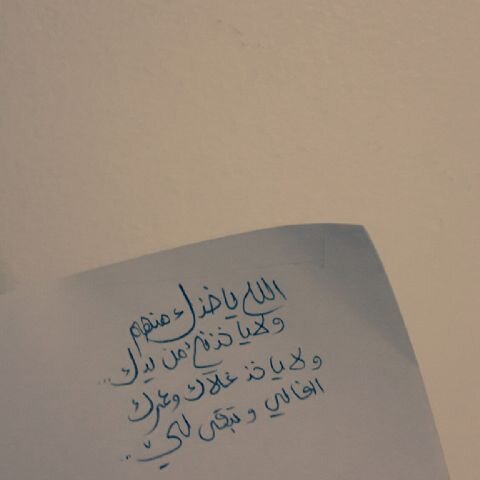 الله ياخذك منهم
ولا ياخذني من يدك..
ولا ياخذ غلاك وعمرك
الغالي وتبقى لي..